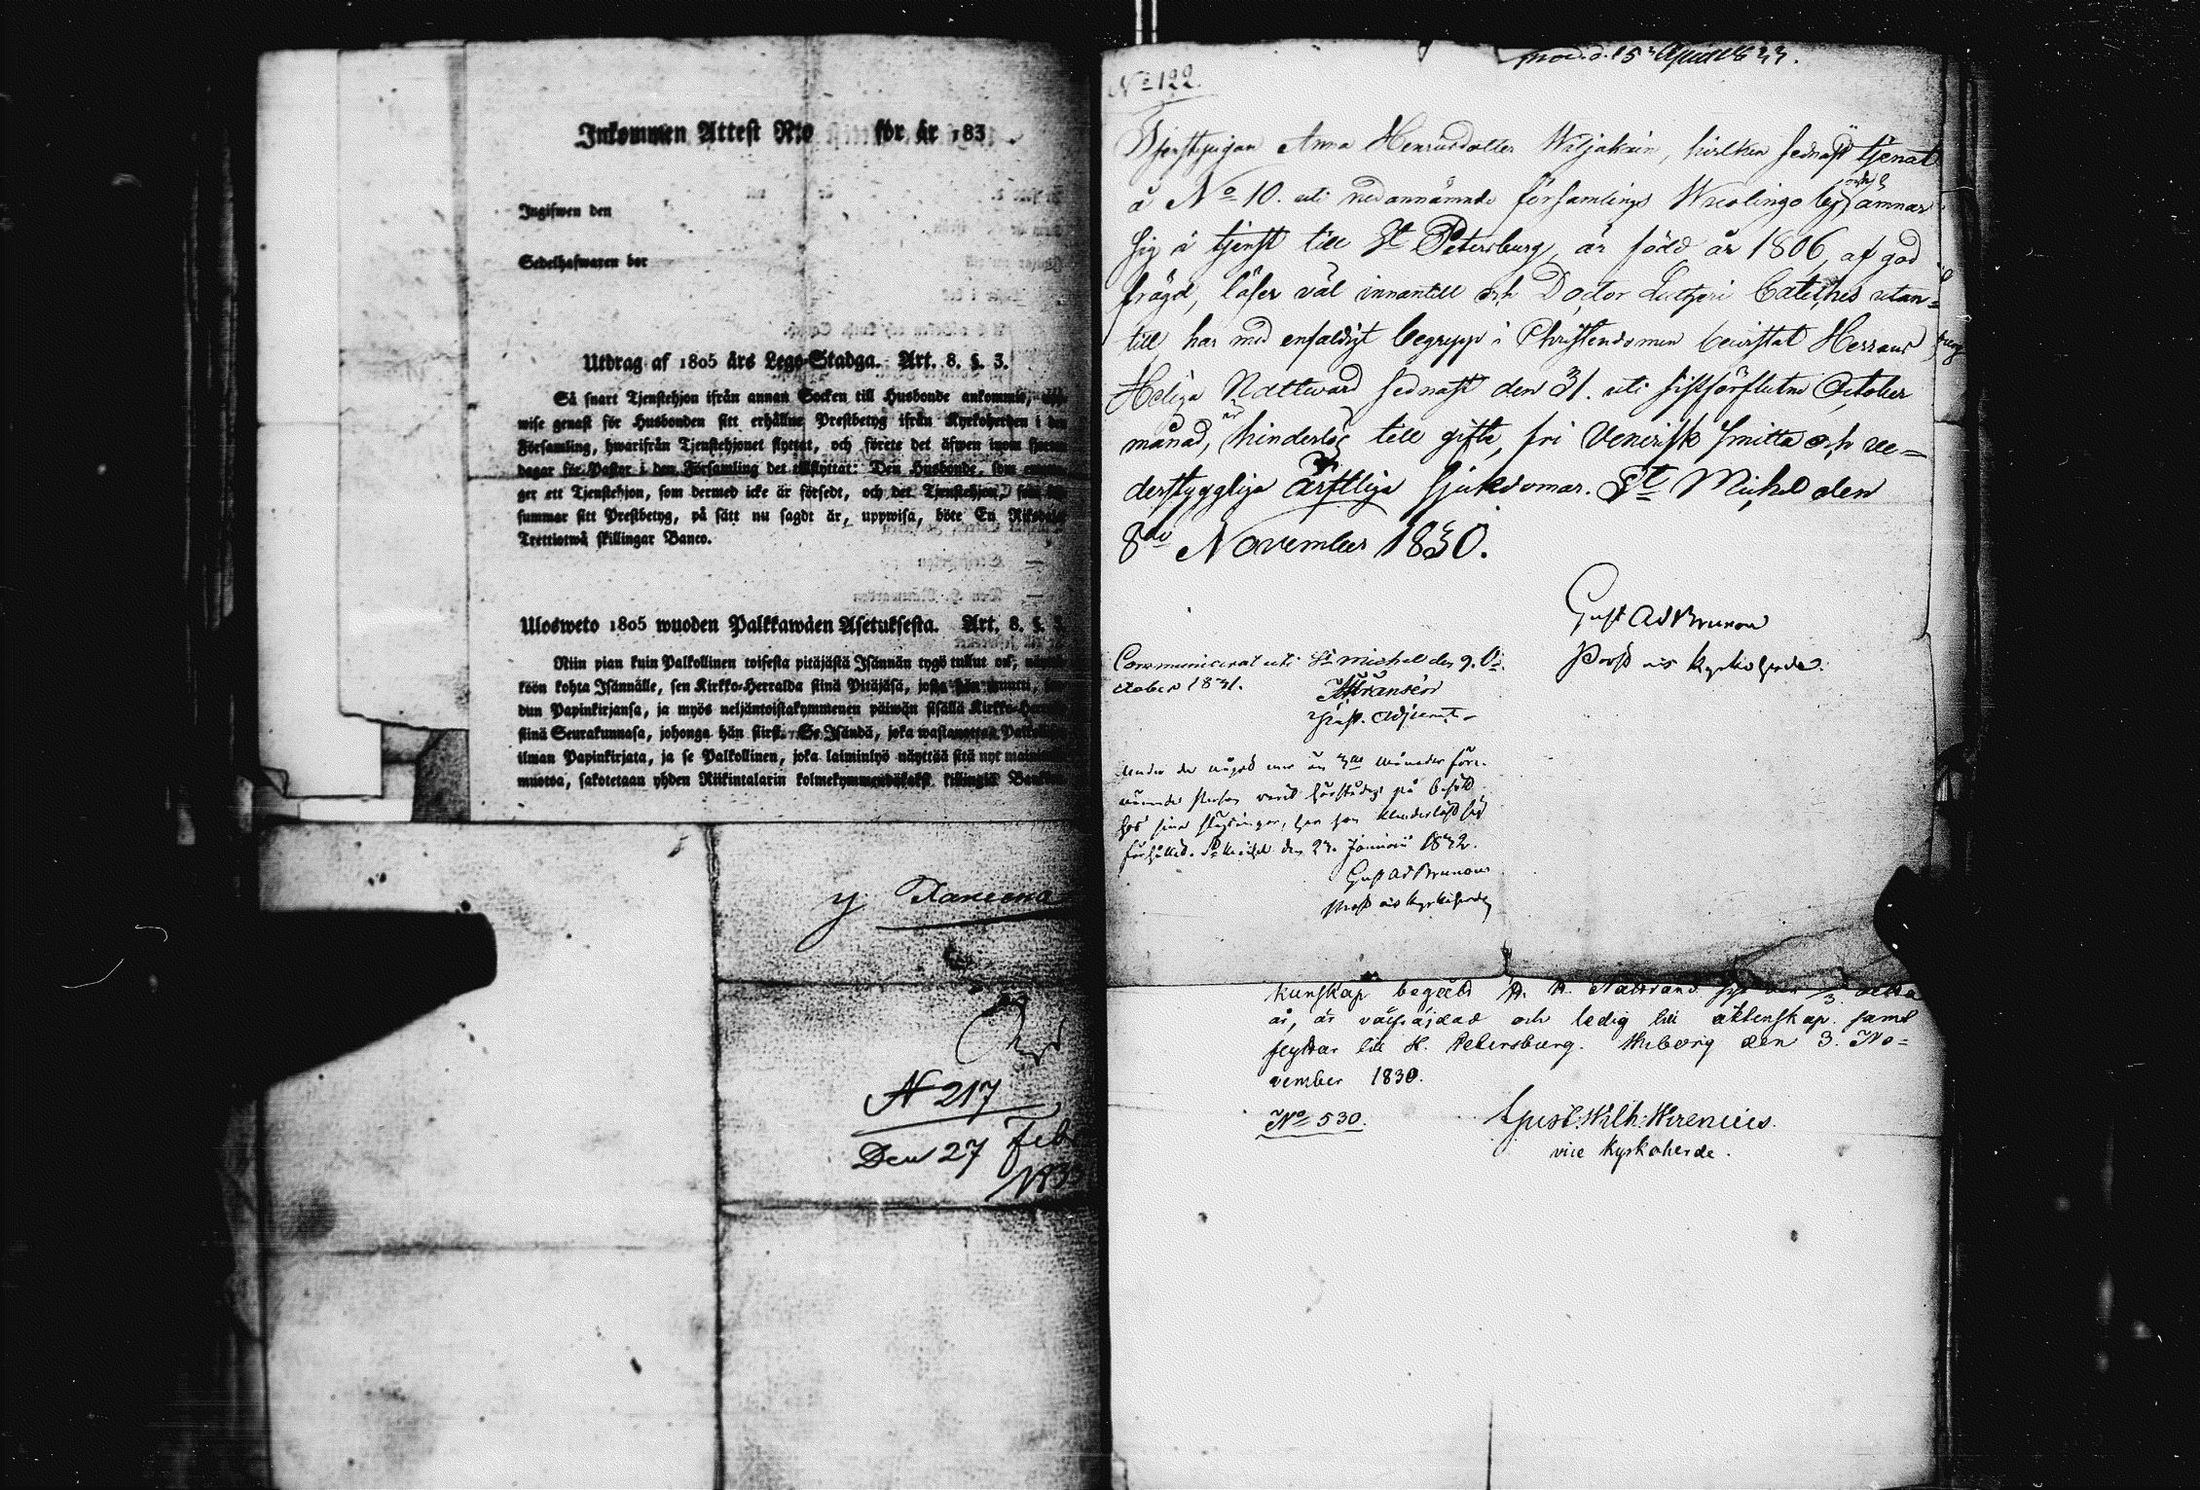 Inkommen Attest N:o för år 183
Ingifwen den
Sedelhafwaren bor
Utdrag af 1805 års Lego-Stadga. Art. 8. §. 3.
Så snart Tjenstehjon ifrån annan Socken till Husbonde ankommit,
wise genast för Husbonden sitt erhållne Prestbetyg ifrån Kyrkoherden i den
Församling, hwarifrån Tjenstehjonet flyttat, och förete det äfwen inom fjorton
dagar för Pastor i den Församling det tillflyttat: Den Husbonde, som
ger ett Tjenstehjon, som dermed icke är försedt, och det Tjenstehjon,
summar sitt Prestbetyg, på sätt nu sagdt är, uppwisa, böte En Riksdaler
Trettiotwå skillingar Banco.
Ulosweto 1805 wuoden Palkkawäen Asetuksesta. Art. 8. §. 3.
Niin pian kuin Palkollinen toisesta pitäjästä Isännän tygö tullut on,
köön kohta Isännälle, sen Kirkko-Herralda siinä Pitäjäsä, josta hän muutti,
dun Papinkirjansa, ja myös neljäntoistakymmenen päiwän sisällä Kirkko-
siinä Seurakunnasa, johonga hän siirsi. Se Isändä, joka wastaanottaa
ilman Papinkirjata, ja se Palkollinen, joka laiminlyö näyttää sitä nyt
muotoa, sakotetaan yhden Riikintalarin kolmekymmendäkaksi killingiä
N 217
Den 27 Feb
183
prod. d. 15 April 1833.
No 122.
Tjenstpigan Anna Henricsdotter Wiljakain, hvilken sednast tjenat
å No 10. uti nedannämnde församlings Wuolingo by, och ämnar
sig i tjenst till St Petersburg, är född år 1806, af god
frägd, läser väl innantill och Doctor Lutheri Cateches utan-
till, har med enfaldigt begrepp i Christendomen bevistat Herrans
Heliga Nattward sednast den 31. uti sistförflutne October
månad, är hinderlös till gifte, fri Venerisk smitta och ve-
derstyggliga ärftliga sjukdomar. St Michel den
8de November 1830.
Gust Ad Brunou
Prost och Kyrkoherde.
Communicerat uti St Michel den 9. O-
ctober 1831.
Past. Adjunct.
Under de något mer än 3ne månader före-
nämnde person varit härstädes på besök
hos sina släktingar, har hon klanderlöst sig
förhållit. St Michel den 23. Januarii 1832.
Gust Ad Brunou
Prost och Kyrkoherde
kunskap begått H. H. Nattvard 3. detta
år, är välfrejdad och ledig till äktenskap samt
flyttar till St. Petersburg. Wiborg den 3. No-
vember 1830.
No 530. Gust: Wilh: Wirenius.
vice Kyrkoherde.